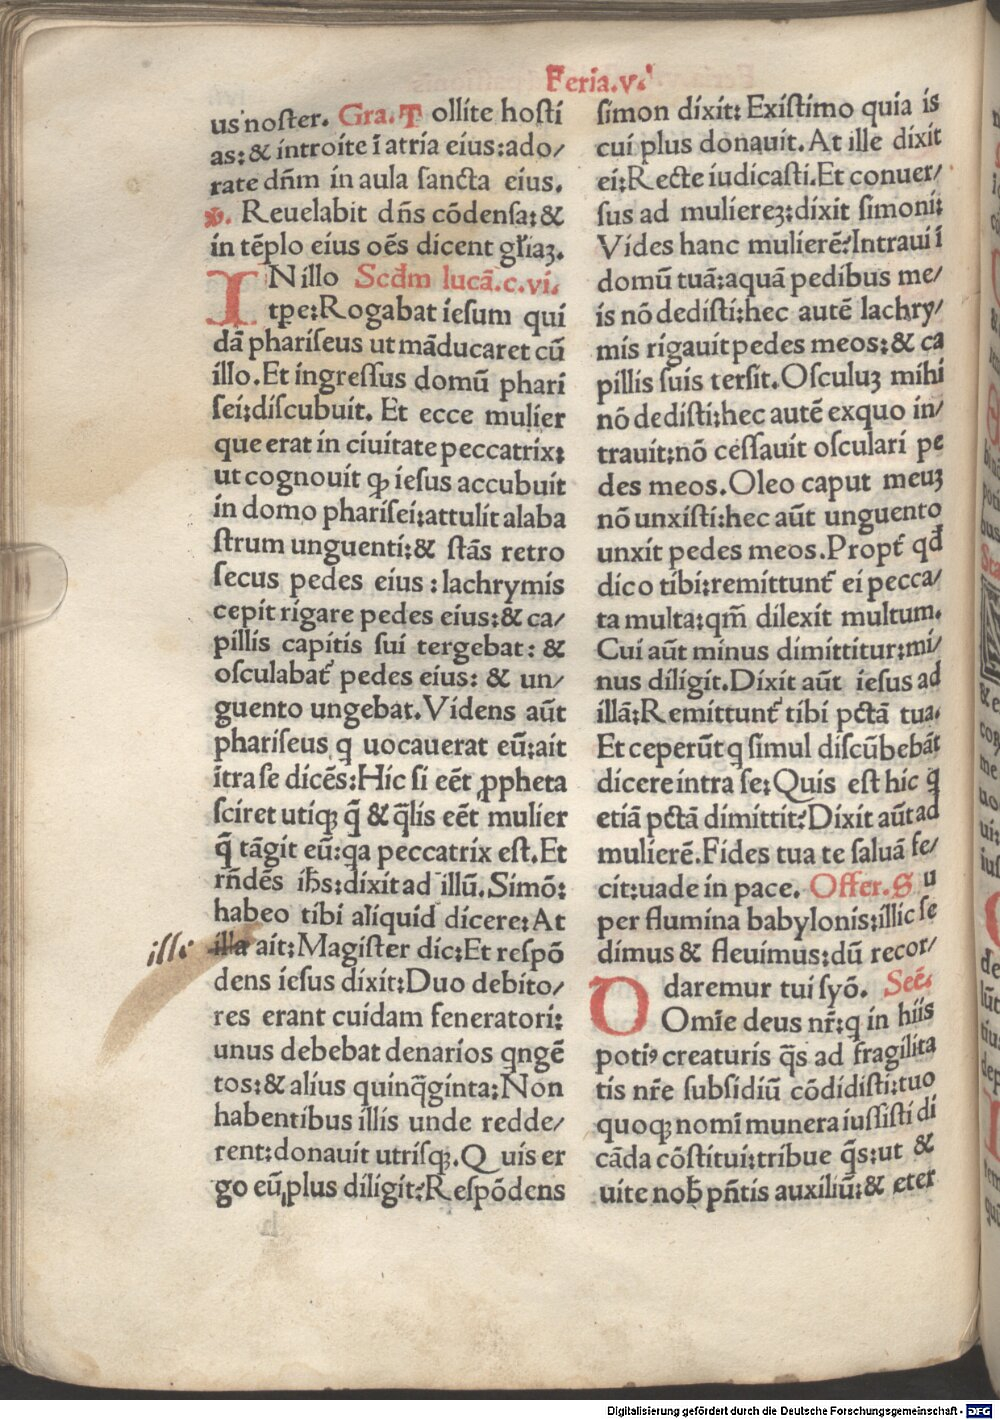 Feria.v.
us noster. Gra. T ollite hosti
as: & introite ī atria eius: ado/
rate dn̄m in aula sancta eius.
v̄. Reuelabit dn̄s cōdensa: &
in tēplo eius oēs dicent gl̄iaꝫ.
IN illo Scđm lucā.c.vi.
tꝑe: Rogabat iesum qui
dā phariseus ut māducaret cū
illo. Et ingressus domū phari
sei: discubuit. Et ecce mulier
que erat in ciuitate peccatrix:
ut cognouit ꝙ iesus accubuit
in domo pharisei: attulit alaba
strum unguenti: & stās retro
secus pedes eius : lachrymis
cepit rigare pedes eius: & ca/
pillis capitis sui tergebat: &
osculabat᷑ pedes eius: & un/
guento ungebat. Videns aūt
phariseus q uocauerat eū: ait
ītra se dicēs: Hic si eēt ꝓpheta
sciret utiqꝫ q̄ & q̄lis eēt mulier
q̄ tāgit eū: qa peccatrix est. Et
rn̄dēs ih̄s: dixit ad illū. Simō:
habeo tibi aliquid dicere: At
illa ait: Magister dic: Et respō
ille
dens iesus dixit: Duo debito/
res erant cuidam feneratori:
unus debebat denarios qngē
tos: & alius quinq̄ginta: Non
habentibus illis unde redde/
rent: donauit utrisqꝫ. Q uis er
go eū plus diligit? Respōdens
simon dixit: Existimo quia is
cui plus donauit. At ille dixit
ei: Recte iudicasti. Et conuer/
sus ad muliereꝫ: dixit simoni:
Vides hanc mulierē? Intraui ī
domū tuā: aquā pedibus me/
is nō dedisti: hec autē lachry/
mis rigauit pedes meos: & ca
pillis suis tersit. Osculuꝫ mihi
nō dedisti: hec autē exquo in/
trauit: nō cessauit osculari pe
des meos. Oleo caput meuꝫ
nō unxisti: hec aūt unguento
unxit pedes meos. Propt᷑ qđ
dico tibi: remittunt᷑ ei pecca/
ta multa: qm̄ dilexit multum.
Cui aūt minus dimittitur: mi/
nus diligit. Dixit aūt iesus ad
illā: Remittunt᷑ tibi pctā tua.
Et ceperūt q simul discūbebāt
dicere intra se: Quis est hic q̄
etiā pctā dimittit? Dixit aūt ad
mulierē. Fides tua te saluā fe/
cit: uade in pace. Offer. S u
per flumina babylonis: illic se
dimus & fleuimus: dū recor/
daremur tui syō. Seč.
O Omīe deus nr̄: q in hiis
potiꝰ creaturis q̄s ad fragilita
tis nr̄e subsidiū cōdidisti: tuo
quoqꝫ nomī munera iussisti di
cāda cōstitui: tribue q̄s: ut &
uite nob̄ pn̄tis auxiliū: & eter
Digitalisierung gefördert durch die Deutsche Forschungsgemeinschaft - DFG